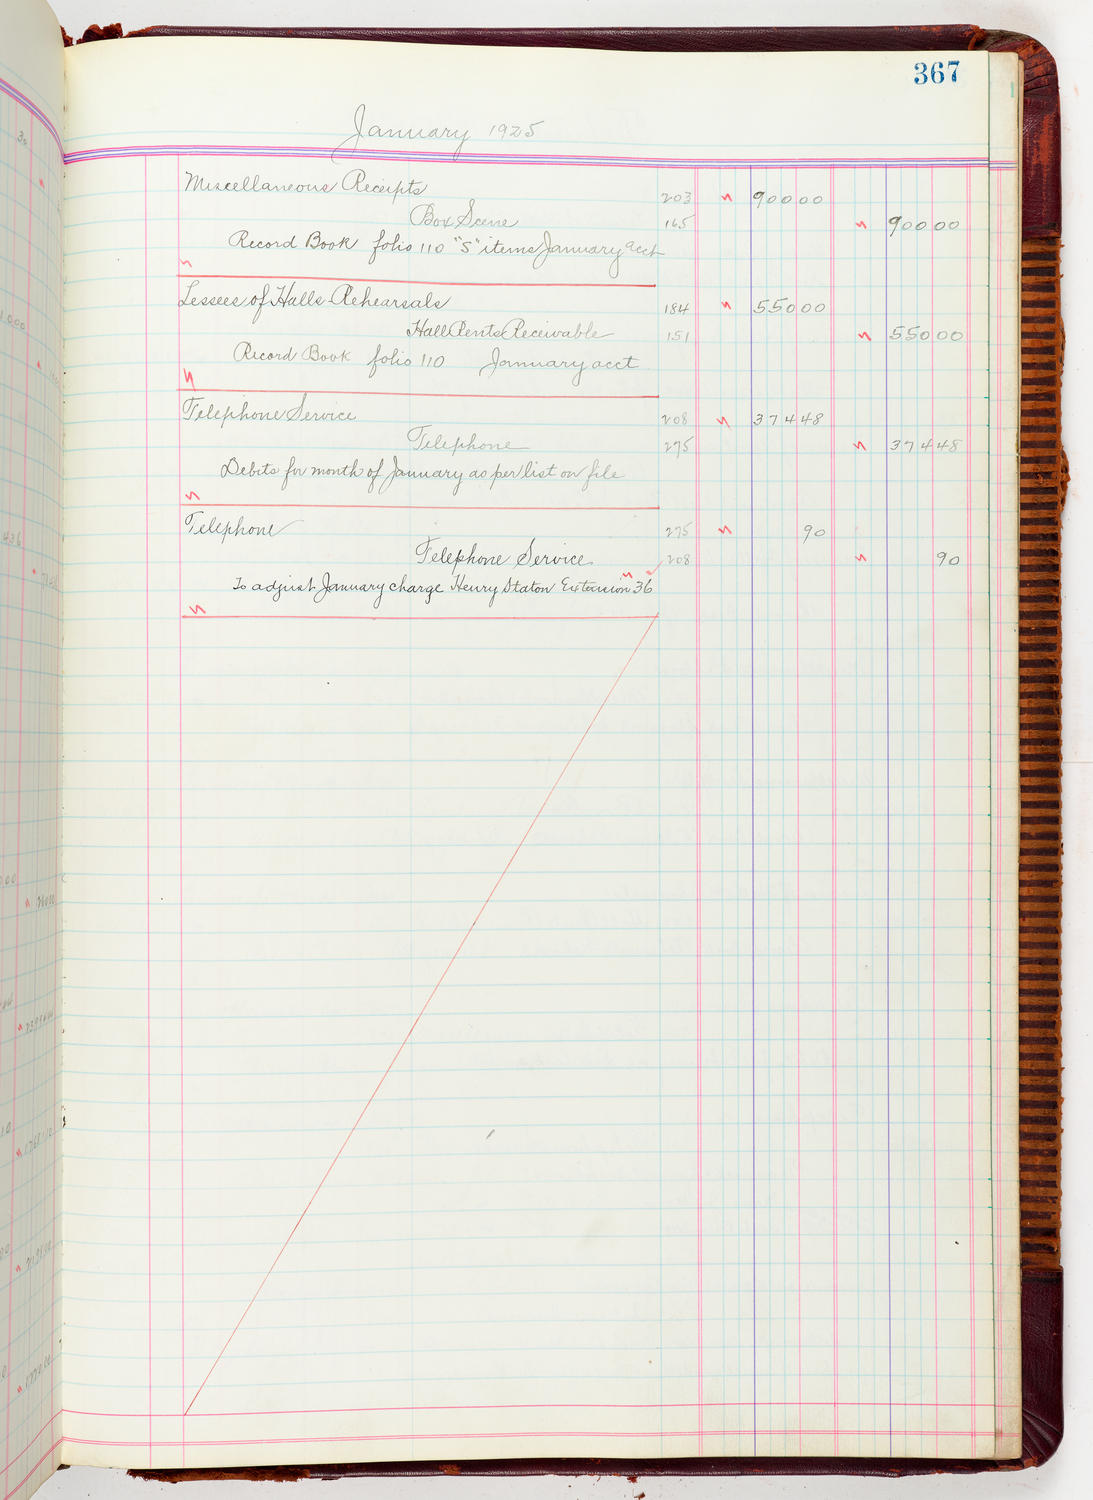 367
January 1925
Miscellaneous Receipts 203 90000
Box Scene 165 90000
Record Book folio 110 "S" items January acct
Lessees of Halls Rehearsals 184 55000
Hall Rents Receivable 151 55000
Record Book folio 110 January acct
Telephone Service 208 37448
Telephone 275 37448
Debits for month of January as per list on file
Telephone 275 90
Telephone Service 208 90
To adjust January charge Henry Staton Extension 36